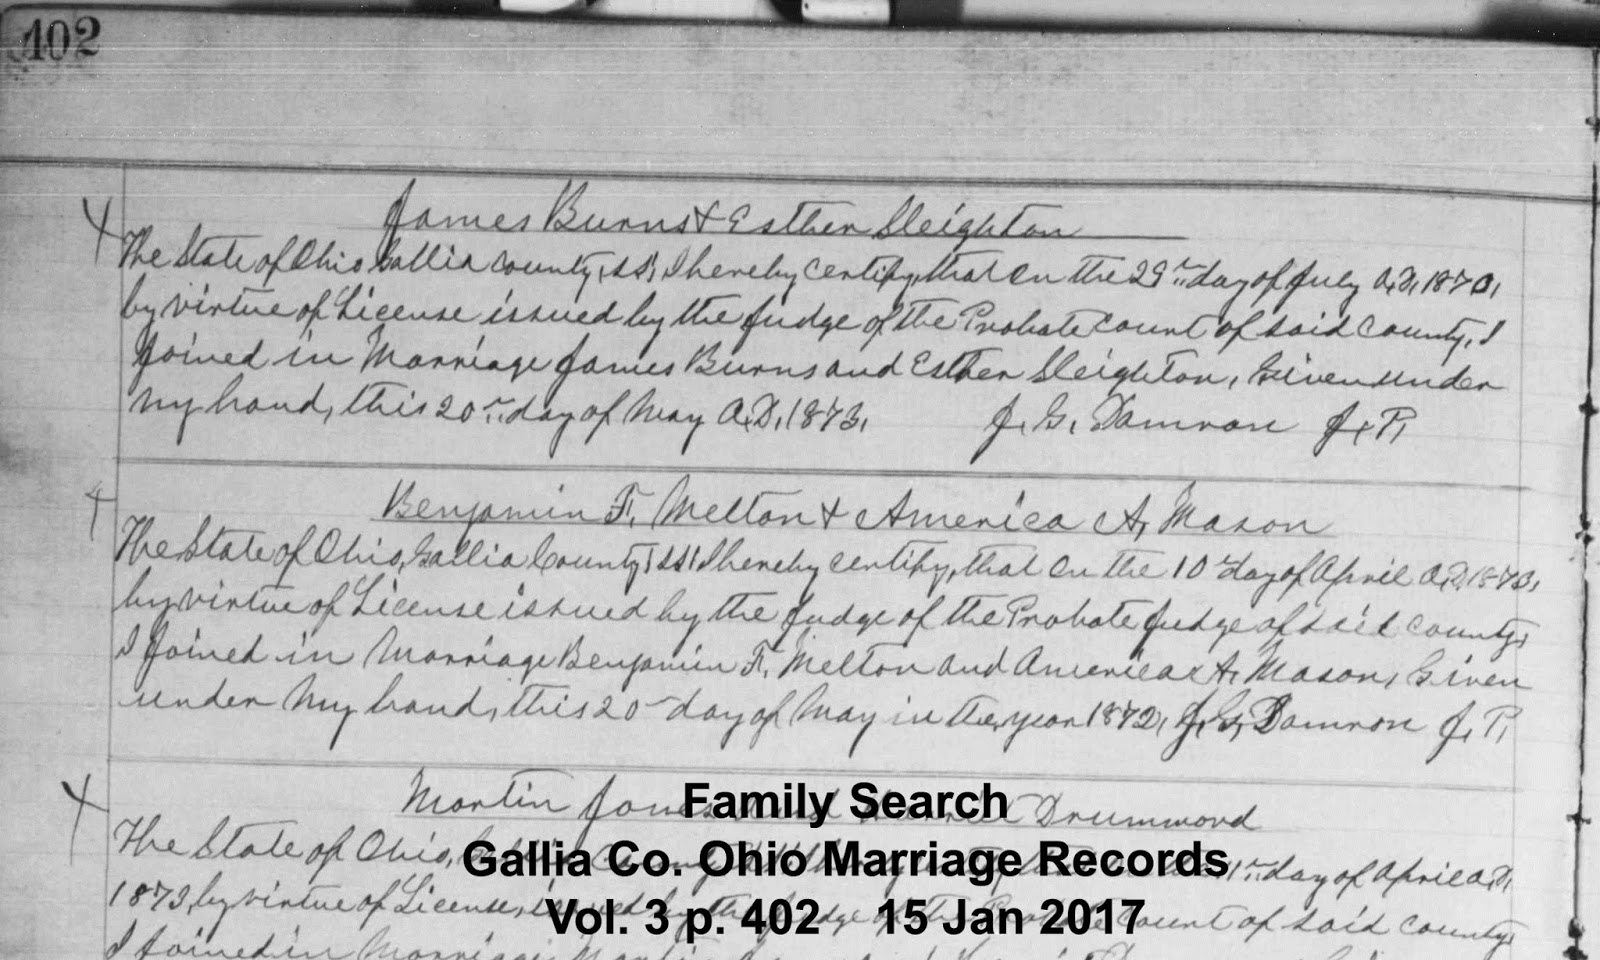 402
James Burns & Esther Sleighton
The State of Ohio Gallia County, ss, I hereby certify, that on the 29th day of July A.D. 1870,
by virtue of License issued by the Judge of the Probate Court of said County, I
Joined in Marriage James Burns and Esther Sleighton, Given under
my hand, this 20th day of May A.D. 1873, J. G. Damron J. P.
Benjamin F. Melton & America A. Mason
The State of Ohio, Gallia County, ss, I hereby certify, that on the 10th day of April A.D. 1873,
by virtue of License issued by the Judge of the Probate Judge of said County,
I Joined in Marriage Benjamin F. Melton and America A. Mason, Given
under my hand, this 20 day of May in the year 1873, J. G. Damron J. P.
Martin Jones and Drummond
Family Search
The State of Ohio, day of April A.D.
Gallia Co. Ohio Marriage Records
1873, by virtue of License, issued by the Judge of the Probate Court of said County
Vol. 3 p. 402 15 Jan 2017
I Joined in Marriage Martin